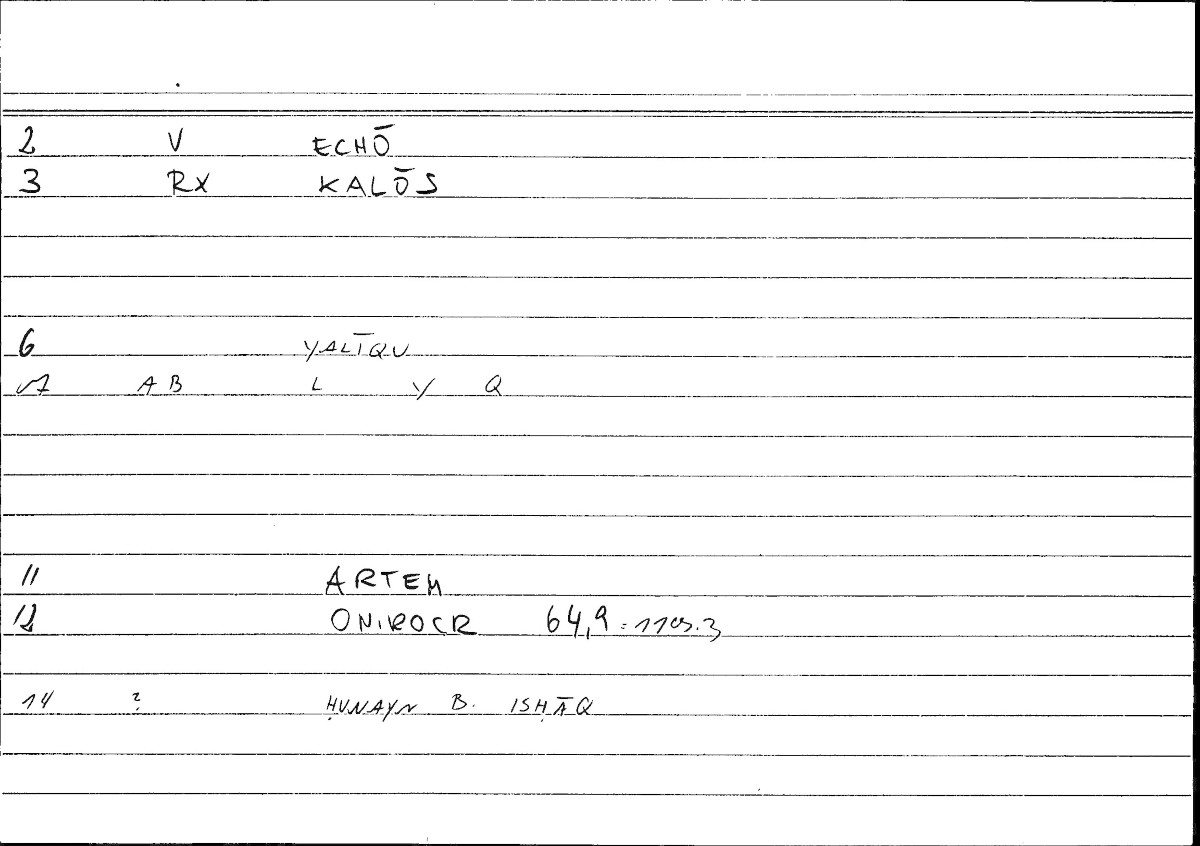 2 V ECHŌ
3 RX KALŌS
6 YALĪQU
7 AB L Y Q
11 ARTEM
12 ONIROCR 64,9 : 119.3
14 ? ḤUNAYN B. ISḤĀQ